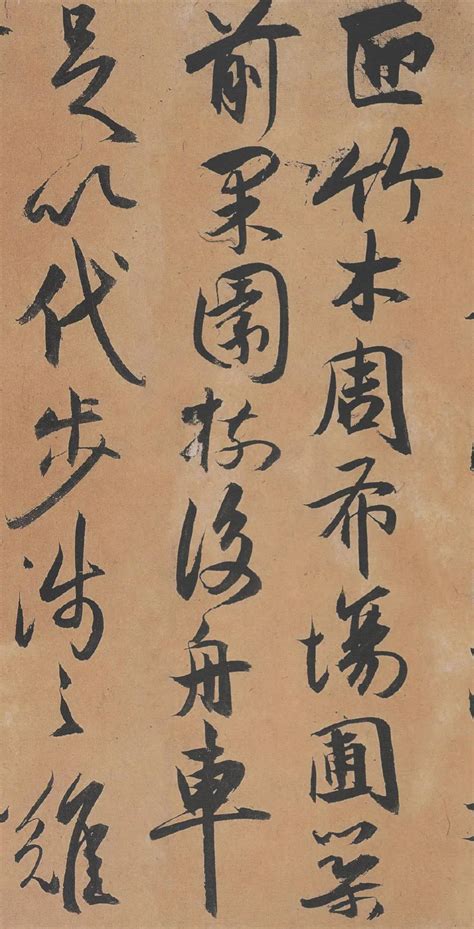 匝竹木周布場圃築
前果園樹後舟車
足以代步涉之難